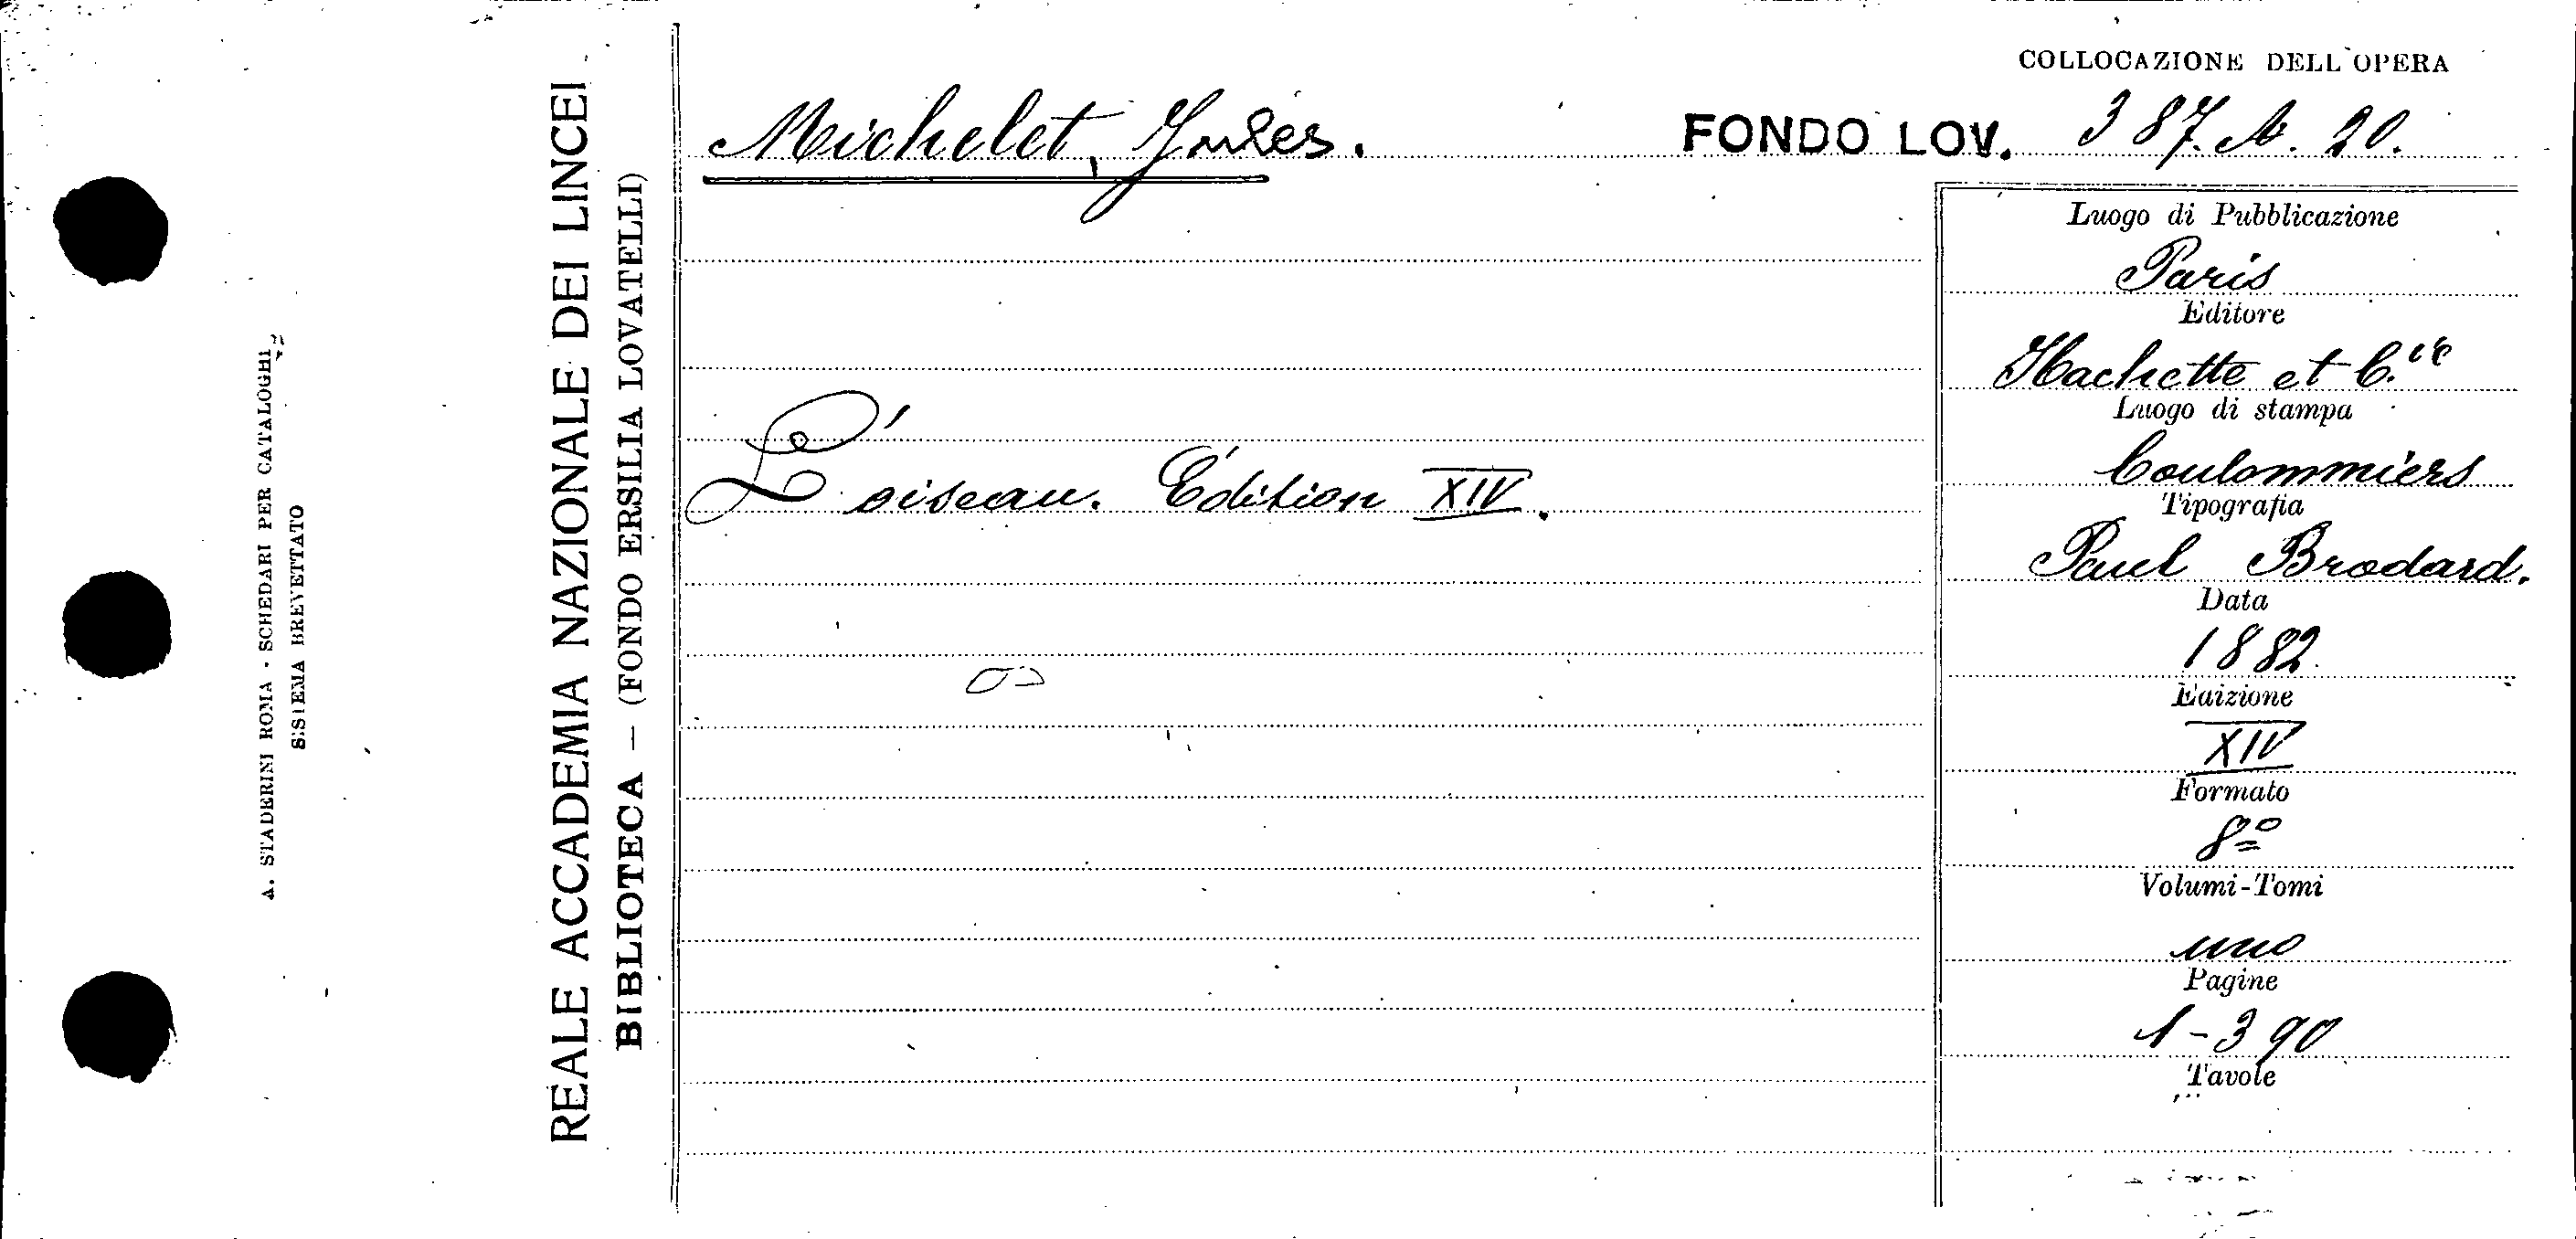 A. STADERINI ROMA - SCHEDARI PER CATALOGHI
SISTEMA BREVETTATO
REALE ACCADEMIA NAZIONALE DEI LINCEI
BIBLIOTECA — (FONDO ERSILIA LOVATELLI)
COLLOCAZIONE DELL'OPERA
Michelet, Jules. FONDO LOV. 387. A. 20.
L'oiseau. Édition XIV.
Luogo di Pubblicazione
Paris
Editore
Hachette et C.ie
Luogo di stampa
Coulommiers
Tipografia
Paul Brodard.
Data
1882
Edizione
XIV
Formato
8º
Volumi-Tomi
uno
Pagine
1-390
Tavole